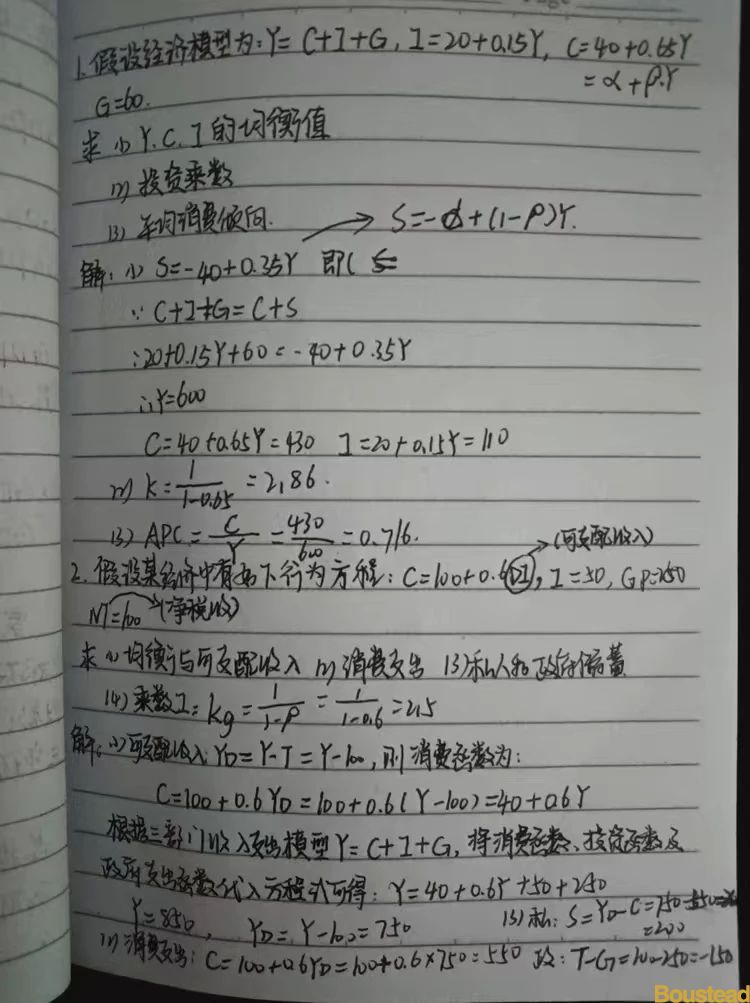 1. 假设经济模型为: Y= C+I+G, I=20+0.15Y, C=40+0.65Y
=α+β.Y
G=60.
求 (1) Y. C. I 的均衡值
(2) 投资乘数
(3) 平均消费倾向.
S=-α+(1-β)Y.
解: (1) S=-40+0.35Y 即( S=
∵ C+I+G=C+S
∴20+0.15Y+60=-40+0.35Y
∴Y=600
C=40+0.65Y=430 I=20+0.15Y=110
(2) K=1/1-0.65=2.86.
(3) APC=C/Y=430/600=0.716.
(可支配收入)
2. 假设某经济中有如下行为方程: C=100+0.6DI, I=50, GP=250
NT=100 (净税收)
求 (1) 均衡与可支配收入 (2) 消费支出 (3) 私人和政府储蓄
(4) 乘数I= Kg=1/1-β=1/1-0.6=2.5
解: (1) 可支配收入: YD=Y-T=Y-100, 则消费函数为:
C=100+0.6YD=100+0.6(Y-100)=40+0.6Y
根据三部门收入支出模型Y=C+I+G, 将消费函数、投资函数及
政府支出函数代入方程式可得: Y=40+0.6Y+50+250
Y=850, YD=Y-100=750 (3) 私: S=YD-C=750-550
=200
(2) 消费支出: C=100+0.6YD=100+0.6×750=550 政: T-G=100-250=-150
Boustead